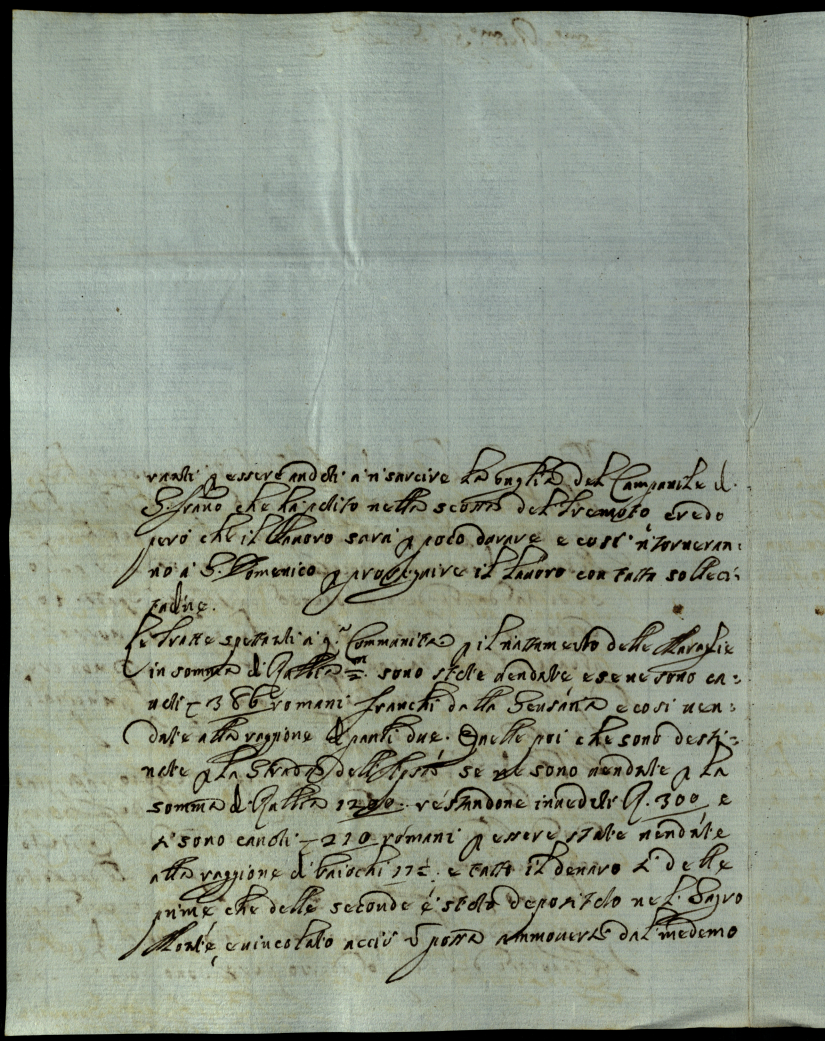 vranti p essere andati a risarcire la paglia del Campanile d.
S. Frano che ha patito nella scossa del Tremoto credo
però che il Lavoro sarà p poco durare e così ritorneran:
no a S. Domenico p proseguire il Lavoro con tutta solleci:
tudine.
Le Tratte spettanti a q.a Communità p il riattamento delle Muraglie
in somma di Rubbia m/2. sono state vendute e se ne sono ca:
vati 386 romani franchi dalla Sensaria e così ven:
dute alla raggione di pauli due. Quelle poi che sono desti:
nate p la Strada dell'Aspio se ne sono vendute p la
somma di Rubbia 1200. restandone invendute R. 300 e
si sono cavati 210 romani p essere state vendute
alla raggione di baiochi 17½. e tutto il denaro sì delle
prime che delle seconde è stato depositato nel Sagro
Monte, e vincolato acciò n possa ammoversi dal medemo